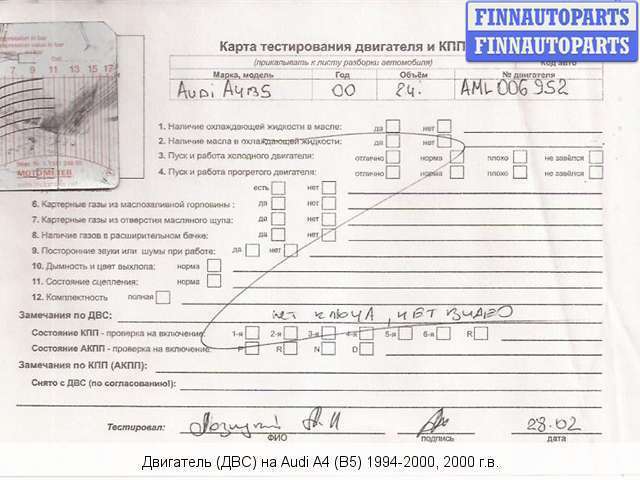 FINNAUTOPARTS
FINNAUTOPARTS
Карта тестирования двигателя и КПП
(прикалывать к листу разборки автомобиля)
Код авто
Марка, модель Год Объём № двигателя
AUDI A4B5 00 2.4. AML 006952
7 9 11 13 15 17
MOTOMETER
1. Наличие охлаждающей жидкости в масле: да нет
2. Наличие масла в охлаждающей жидкости: да нет
3. Пуск и работа холодного двигателя: отлично норма плохо не завёлся
4. Пуск и работа прогретого двигателя: отлично норма плохо не завёлся
есть нет
6. Картерные газы из маслозаливной горловины : да нет
7. Картерные газы из отверстия масляного щупа: да нет
8. Наличие газов в расширительном бачке: да нет
9. Посторонние звуки или шумы при работе: да нет
10. Дымность и цвет выхлопа: норма
11. Состояние сцепления: норма
12. Комплектность полная
Замечания по ДВС: НЕТ КЛЮЧА, НЕТ ВИДЕО
Состояние КПП - проверка на включение: 1-я 2-я 3-я 4-я 5-я 6-я R
Состояние АКПП - проверка на включение: P R N D
Замечания по КПП (АКПП):
Снято с ДВС (по согласованию!):
Тестировал: 28.02
ФИО подпись дата
Двигатель (ДВС) на Audi A4 (B5) 1994-2000, 2000 г.в.